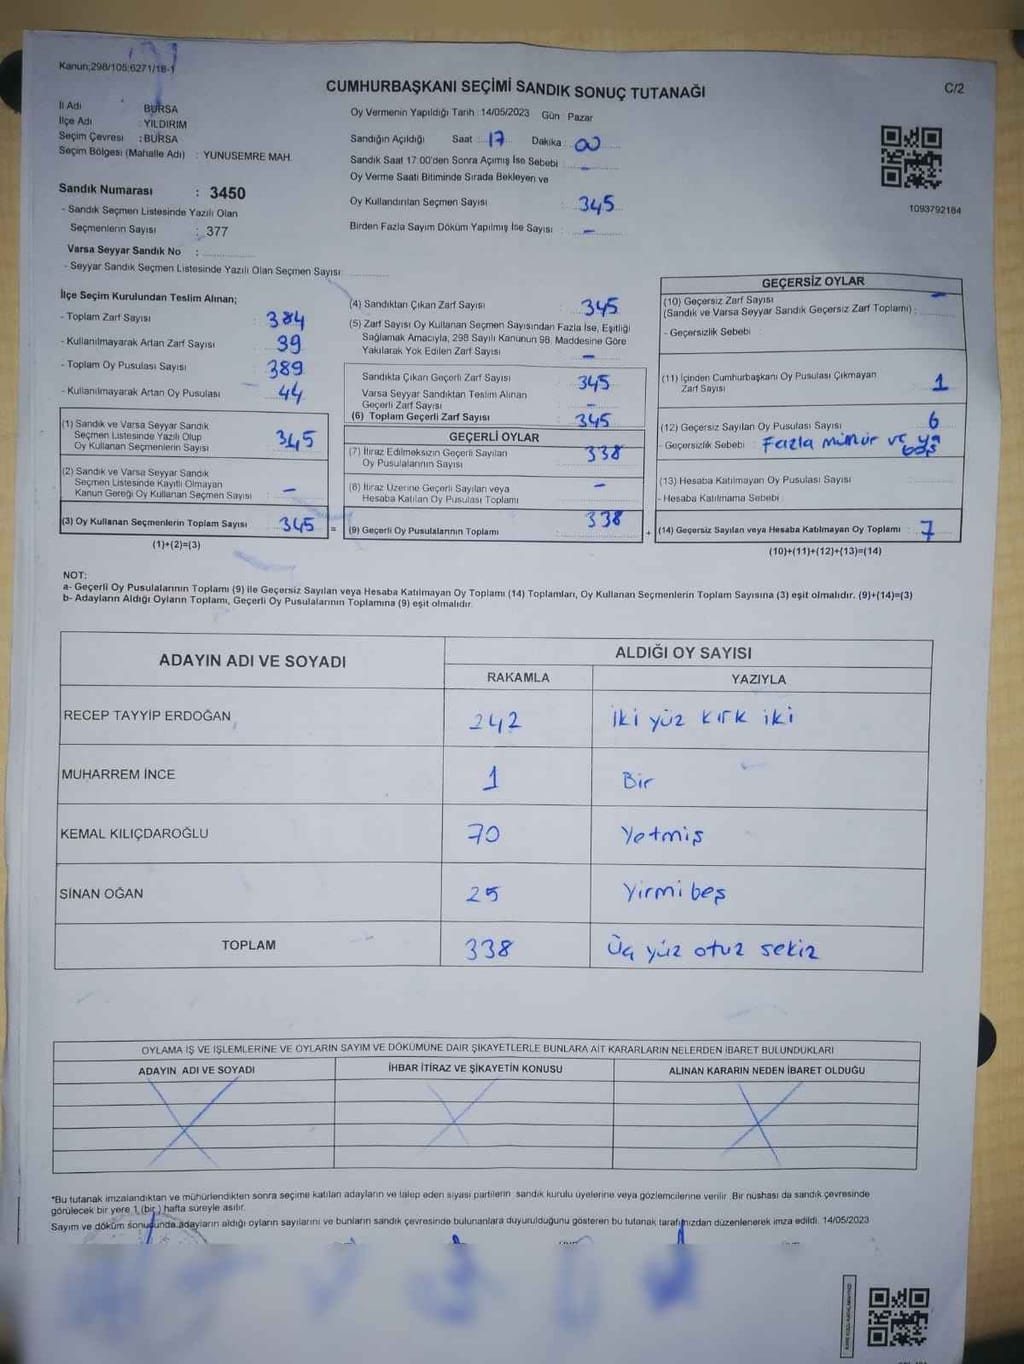 Kanun;298/105;6271/18-1
CUMHURBAŞKANI SEÇİMİ SANDIK SONUÇ TUTANAĞI
C/2
İl Adı BURSA
İlçe Adı : YILDIRIM
Seçim Çevresi : BURSA
Seçim Bölgesi (Mahalle Adı) : YUNUSEMRE MAH.
Sandık Numarası : 3450
- Sandık Seçmen Listesinde Yazılı Olan
Seçmenlerin Sayısı : 377
Varsa Seyyar Sandık No :
- Seyyar Sandık Seçmen Listesinde Yazılı Olan Seçmen Sayısı
Oy Vermenin Yapıldığı Tarih : 14/05/2023 Gün Pazar
Sandığın Açıldığı Saat : 17 Dakika : 00
Sandık Saat 17:00'den Sonra Açımış İse Sebebi : -
Oy Verme Saati Bitiminde Sırada Bekleyen ve
Oy Kullandırılan Seçmen Sayısı : 345
Birden Fazla Sayım Döküm Yapılmış İse Sayısı : -
1093792184
İlçe Seçim Kurulundan Teslim Alınan;
- Toplam Zarf Sayısı 384
- Kullanılmayarak Artan Zarf Sayısı 39
- Toplam Oy Pusulası Sayısı 389
- Kullanılmayarak Artan Oy Pusulası 44
(1) Sandık ve Varsa Seyyar Sandık
Seçmen Listesinde Yazılı Olup
Oy Kullanan Seçmenlerin Sayısı 345
(2) Sandık ve Varsa Seyyar Sandık
Seçmen Listesinde Kayıtlı Olmayan
Kanun Gereği Oy Kullanan Seçmen Sayısı -
(3) Oy Kullanan Seçmenlerin Toplam Sayısı 345 =
(1)+(2)=(3)
(4) Sandıktan Çıkan Zarf Sayısı : 345
(5) Zarf Sayısı Oy Kullanan Seçmen Sayısından Fazla İse, Eşitliği
Sağlamak Amacıyla, 298 Sayılı Kanunun 98. Maddesine Göre
Yakılarak Yok Edilen Zarf Sayısı : -
Sandıkta Çıkan Geçerli Zarf Sayısı : 345
Varsa Seyyar Sandıktan Teslim Alınan
Geçerli Zarf Sayısı : -
(6) Toplam Geçerli Zarf Sayısı : 345
GEÇERLİ OYLAR
(7) İtiraz Edilmeksizin Geçerli Sayılan
Oy Pusulalarının Sayısı : 338
(8) İtiraz Üzerine Geçerli Sayılan veya
Hesaba Katılan Oy Pusulası Toplamı : -
(9) Geçerli Oy Pusulalarının Toplamı 338 +
GEÇERSİZ OYLAR
(10) Geçersiz Zarf Sayısı
(Sandık ve Varsa Seyyar Sandık Geçersiz Zarf Toplamı) : -
- Geçersizlik Sebebi :
(11) İçinden Cumhurbaşkanı Oy Pusulası Çıkmayan
Zarf Sayısı 1
(12) Geçersiz Sayılan Oy Pusulası Sayısı 6
- Geçersizlik Sebebi : Fazla mühür ve ya boş
(13) Hesaba Katılmayan Oy Pusulası Sayısı
- Hesaba Katılmama Sebebi :
(14) Geçersiz Sayılan veya Hesaba Katılmayan Oy Toplamı : 7
(10)+(11)+(12)+(13)=(14)
NOT:
a- Geçerli Oy Pusulalarının Toplamı (9) ile Geçersiz Sayılan veya Hesaba Katılmayan Oy Toplamı (14) Toplamları, Oy Kullanan Seçmenlerin Toplam Sayısına (3) eşit olmalıdır. (9)+(14)=(3)
b- Adayların Aldığı Oyların Toplamı, Geçerli Oy Pusulalarının Toplamına (9) eşit olmalıdır.
ADAYIN ADI VE SOYADI
ALDIĞI OY SAYISI
RAKAMLA YAZIYLA
RECEP TAYYİP ERDOĞAN 242 iki yüz kırk iki
MUHARREM İNCE 1 Bir
KEMAL KILIÇDAROĞLU 70 Yetmiş
SİNAN OĞAN 25 Yirmi beş
TOPLAM 338 Üç yüz otuz sekiz
OYLAMA İŞ VE İŞLEMLERİNE VE OYLARIN SAYIM VE DÖKÜMÜNE DAİR ŞİKAYETLERLE BUNLARA AİT KARARLARIN NELERDEN İBARET BULUNDUKLARI
ADAYIN ADI VE SOYADI İHBAR İTİRAZ VE ŞİKAYETİN KONUSU ALINAN KARARIN NEDEN İBARET OLDUĞU
*Bu tutanak imzalandıktan ve mühürlendikten sonra seçime katılan adayların ve talep eden siyasi partilerin sandık kurulu üyelerine veya gözlemcilerine verilir. Bir nüshası da sandık çevresinde
görülecek bir yere 1 (bir) hafta süreyle asılır.
Sayım ve döküm sonucunda adayların aldığı oyların sayılarını ve bunların sandık çevresinde bulunanlara duyurulduğunu gösteren bu tutanak tarafımızdan düzenlenerek imza edildi. 14/05/2023